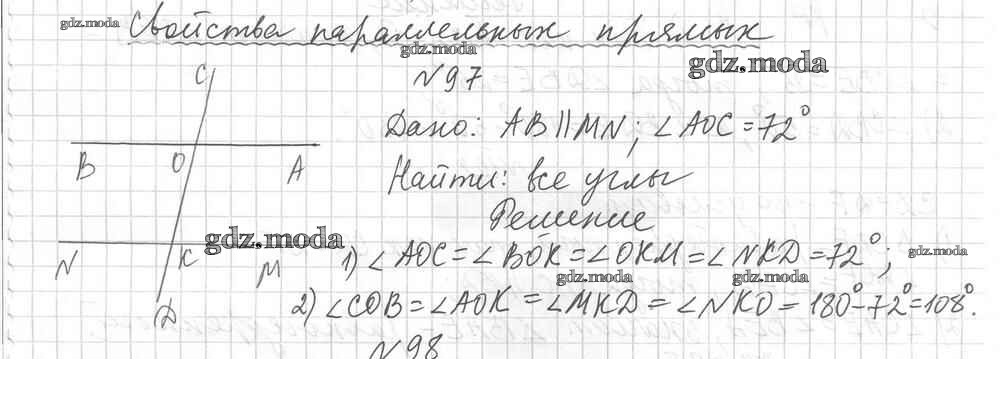 gdz.moda
Свойства параллельных прямых
gdz.moda
gdz.moda
N97
C
Дано: AB∥MN; ∠AOC=72°
B O A
Найти: все углы
Решение
gdz.moda
N K M
1) ∠AOC=∠BOK=∠OKM=∠NKD=72°;
gdz.moda
gdz.moda
gdz.moda
D
2) ∠COB=∠AOK=∠MKD=∠NKO=180°-72°=108°.
N98